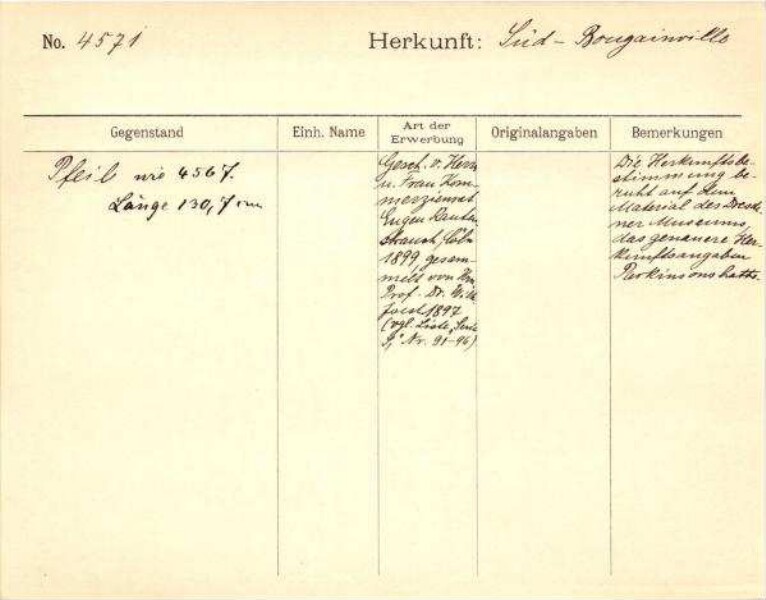 No. 4571
Herkunft: Süd-Bougainville
Gegenstand
Einh. Name
Art der
Erwerbung
Originalangaben
Bemerkungen
Pfeil wie 4567.
Länge 130,7 cm
Gesch. v. Herrn
u. Frau Kom-
merzienrat
Eugen Rauten-
strauch, Cöln
1899 gesam-
melt von Hn
Prof. Dr. Wilh
Joest 1897
(vgl. Liste, Serie
Nr. 91-96)
Die Herkunftsbe-
stimmung be-
ruht auf dem
Material des Dresde-
ner Museums,
das genauere Her-
kunftsangaben
Parkinsons hatte.